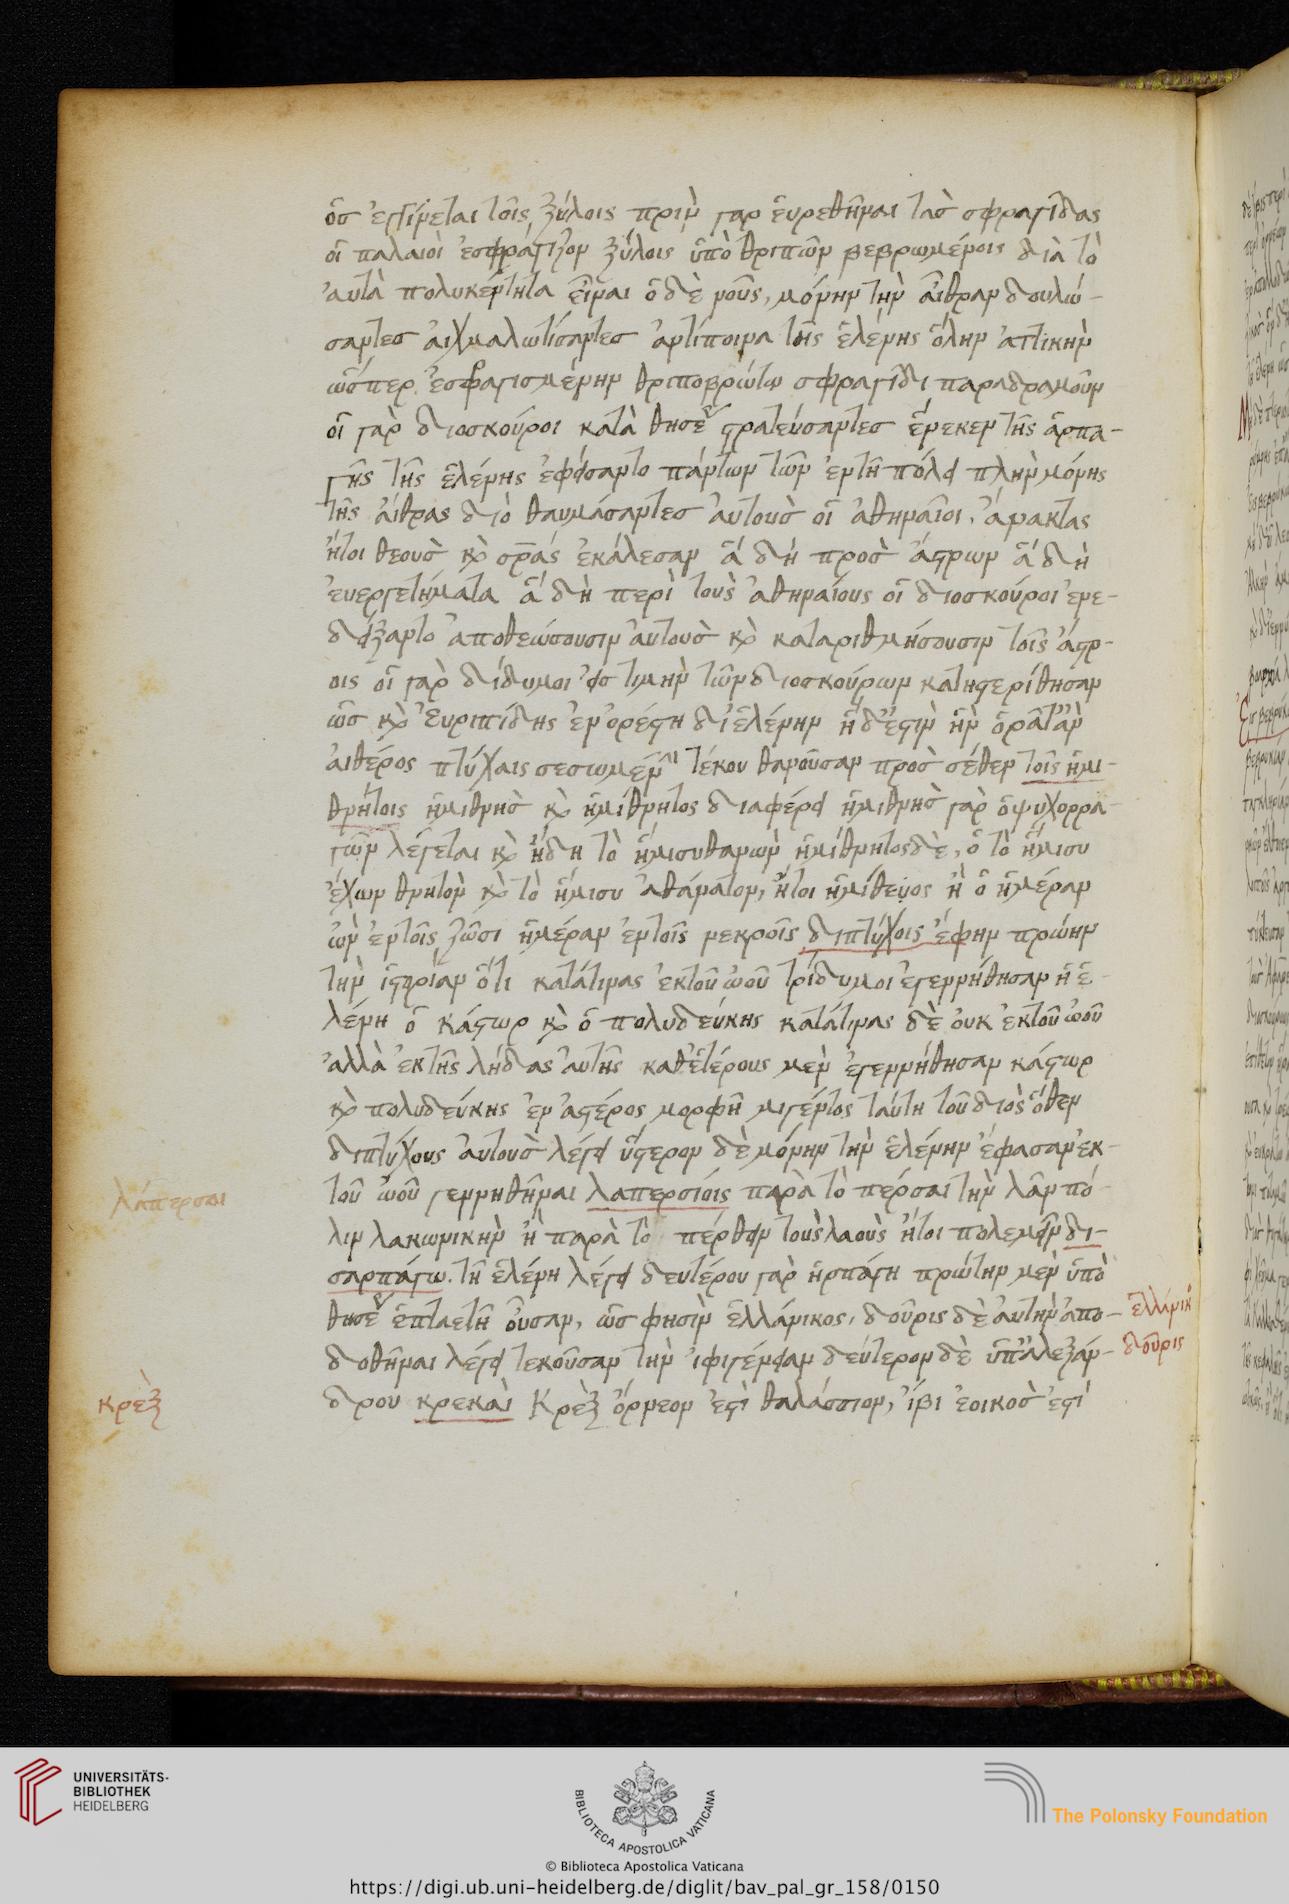 ὃσ ἐγγίνεται τοῖς ξύλοις πρὶν γαρ ἑυρεθῆναι τὰσ σφραγῖδας
οἱ παλαιοὶ ἐσφράγιζον ξύλοις ὑπὸ θριπῶν βεβρωμένοις διὰ τὸ
ἀυτὰ πολυκέντητα εἶναι ὁ δὲ νοῦς, μόνην τὴν ἄιθραν δουλώ-
σαντεσ ἀιχμαλωτίσαντεσ ἀντίποινα τῆς ἑλένης ὅλην ἀττικὴν
ὥσπερ ἐσφραγισμένην θριποβρώτω σφραγῖδι παραδραμοῦν
οἱ γαρ διοσκούροι κατὰ θησέως στρατεύσαντεσ ἕνεκεν τῆς ἁρπα-
γῆς τῆς ἑλένης ἐφείσαντο πάντων τῶν ἐν τῆ πόλει πλὴν μόνης
τῆς ἄιθρας διὸ θαυμάσαντεσ ἀυτοὺσ οἱ ἀθηναῖοι, ἄνακτας
ἤτοι θεοὺσ κὶ σρ̅ας ἐκάλεσαν ἃ δὴ προσ ἄστρων ἃ δὴ
ἐυεργετήματα ἃ δὴ περὶ τοὺς ἀθηναίους οἱ διοσκούροι ἐνε-
δείξαντο ἀποθεώσουσιν ἀυτοὺσ κὶ καταριθμήσουσιν τοῖς ἄστρ-
οις οἱ γαρ δίδυμοι εἰσ τιμὴν τῶν διοσκούρων κατηστερίθησαν
ὥσ κὶ Ἐυριπίδης ἐν ὀρέστη δι ἑλένην ἥδ' ἐστὶν ἣν ὁρᾶτ' ἂν
ἀιθέρος πτύχαις σεσωμένη τέκου θανοῦσαν προσ σέθεν τοῖς ἡμι-
θνήτοις ἡμιθνὴσ κὶ ἡμίθνητος διαφέρει ἡμιθνὴσ γαρ ὁ ψυχορρα-
γῶν λέγεται κὶ ἤδη τὸ ἥμισυ θανὼν ἡμίθνητος δὲ, ὁ τὸ ἥμισυ
ἔχων θνητὸν κὶ τὸ ἥμισυ ἀθάνατον, ἤτοι ἡμίθεος ἢ ὁ ἡμέραν
ὢν ἐν τοῖς ζῶσι ἡμέραν ἐν τοῖς νεκροῖς διπτύχοις ἔφην πρώην
τὴν ἱστορίαν ὅτι κατάτινας ἐκ τοῦ ὠοῦ τρίδυμοι ἐγεννήθησαν ἡ ἑ-
λένη ὁ κάστωρ κὶ ὁ πολυδεύκης κατάτινας δὲ ὀυκ ἐκ τοῦ ὠοῦ
ἀλλὰ ἐκ τῆς λήδας ἀυτῆς καθ' ἑτέρους μεν ἐγεννήθησαν κάστωρ
κὶ πολυδεύκης ἐν ἀστέρος μορφῆ μιγέντος ταύτη τοῦ διὸς ὅθεν
διπτύχους ἀυτοὺσ λέγει ὕστερον δὲ μόνην τὴν ἑλένην ἔφασαν ἐκ-
τοῦ ὠοῦ γεννηθῆναι λαπερσίοις παρὰ τὸ πέρσαι τὴν λᾶν πό-
λιν λακωνικὴν ἢ παρὰ τὸ πέρθειν τοὺς λαοὺς ἤτοι πολεμεῖν δι-
σαρπάγω. τῆ ἑλένη λέγει δευτέρου γαρ ἡρπάγη πρώτην μεν ὑπὸ
θησέως ἑπταετῆ ὀυσαν, ὥσ φησὶν ἑλλάνικος, δοῦρις δὲ ἀυτὴν ἀπο-
δοθῆναι λέγει τεκοῦσαν τὴν ἰφιγένειαν δεύτερον δὲ ὑπ' ἀλεξάν-
δρου κρεκαὶ Κρὲξ ὄρνεον ἐστὶ θαλάσσιον, ἴβι ἐοικοσ ἐστὶ
λάπερσαι
ἑλλάνικος
δοῦρις
κρὲξ
UNIVERSITÄTS-
BIBLIOTHEK
HEIDELBERG
BIBLIOTECA APOSTOLICA VATICANA
The Polonsky Foundation
© Biblioteca Apostolica Vaticana
https://digi.ub.uni-heidelberg.de/diglit/bav_pal_gr_158/0150